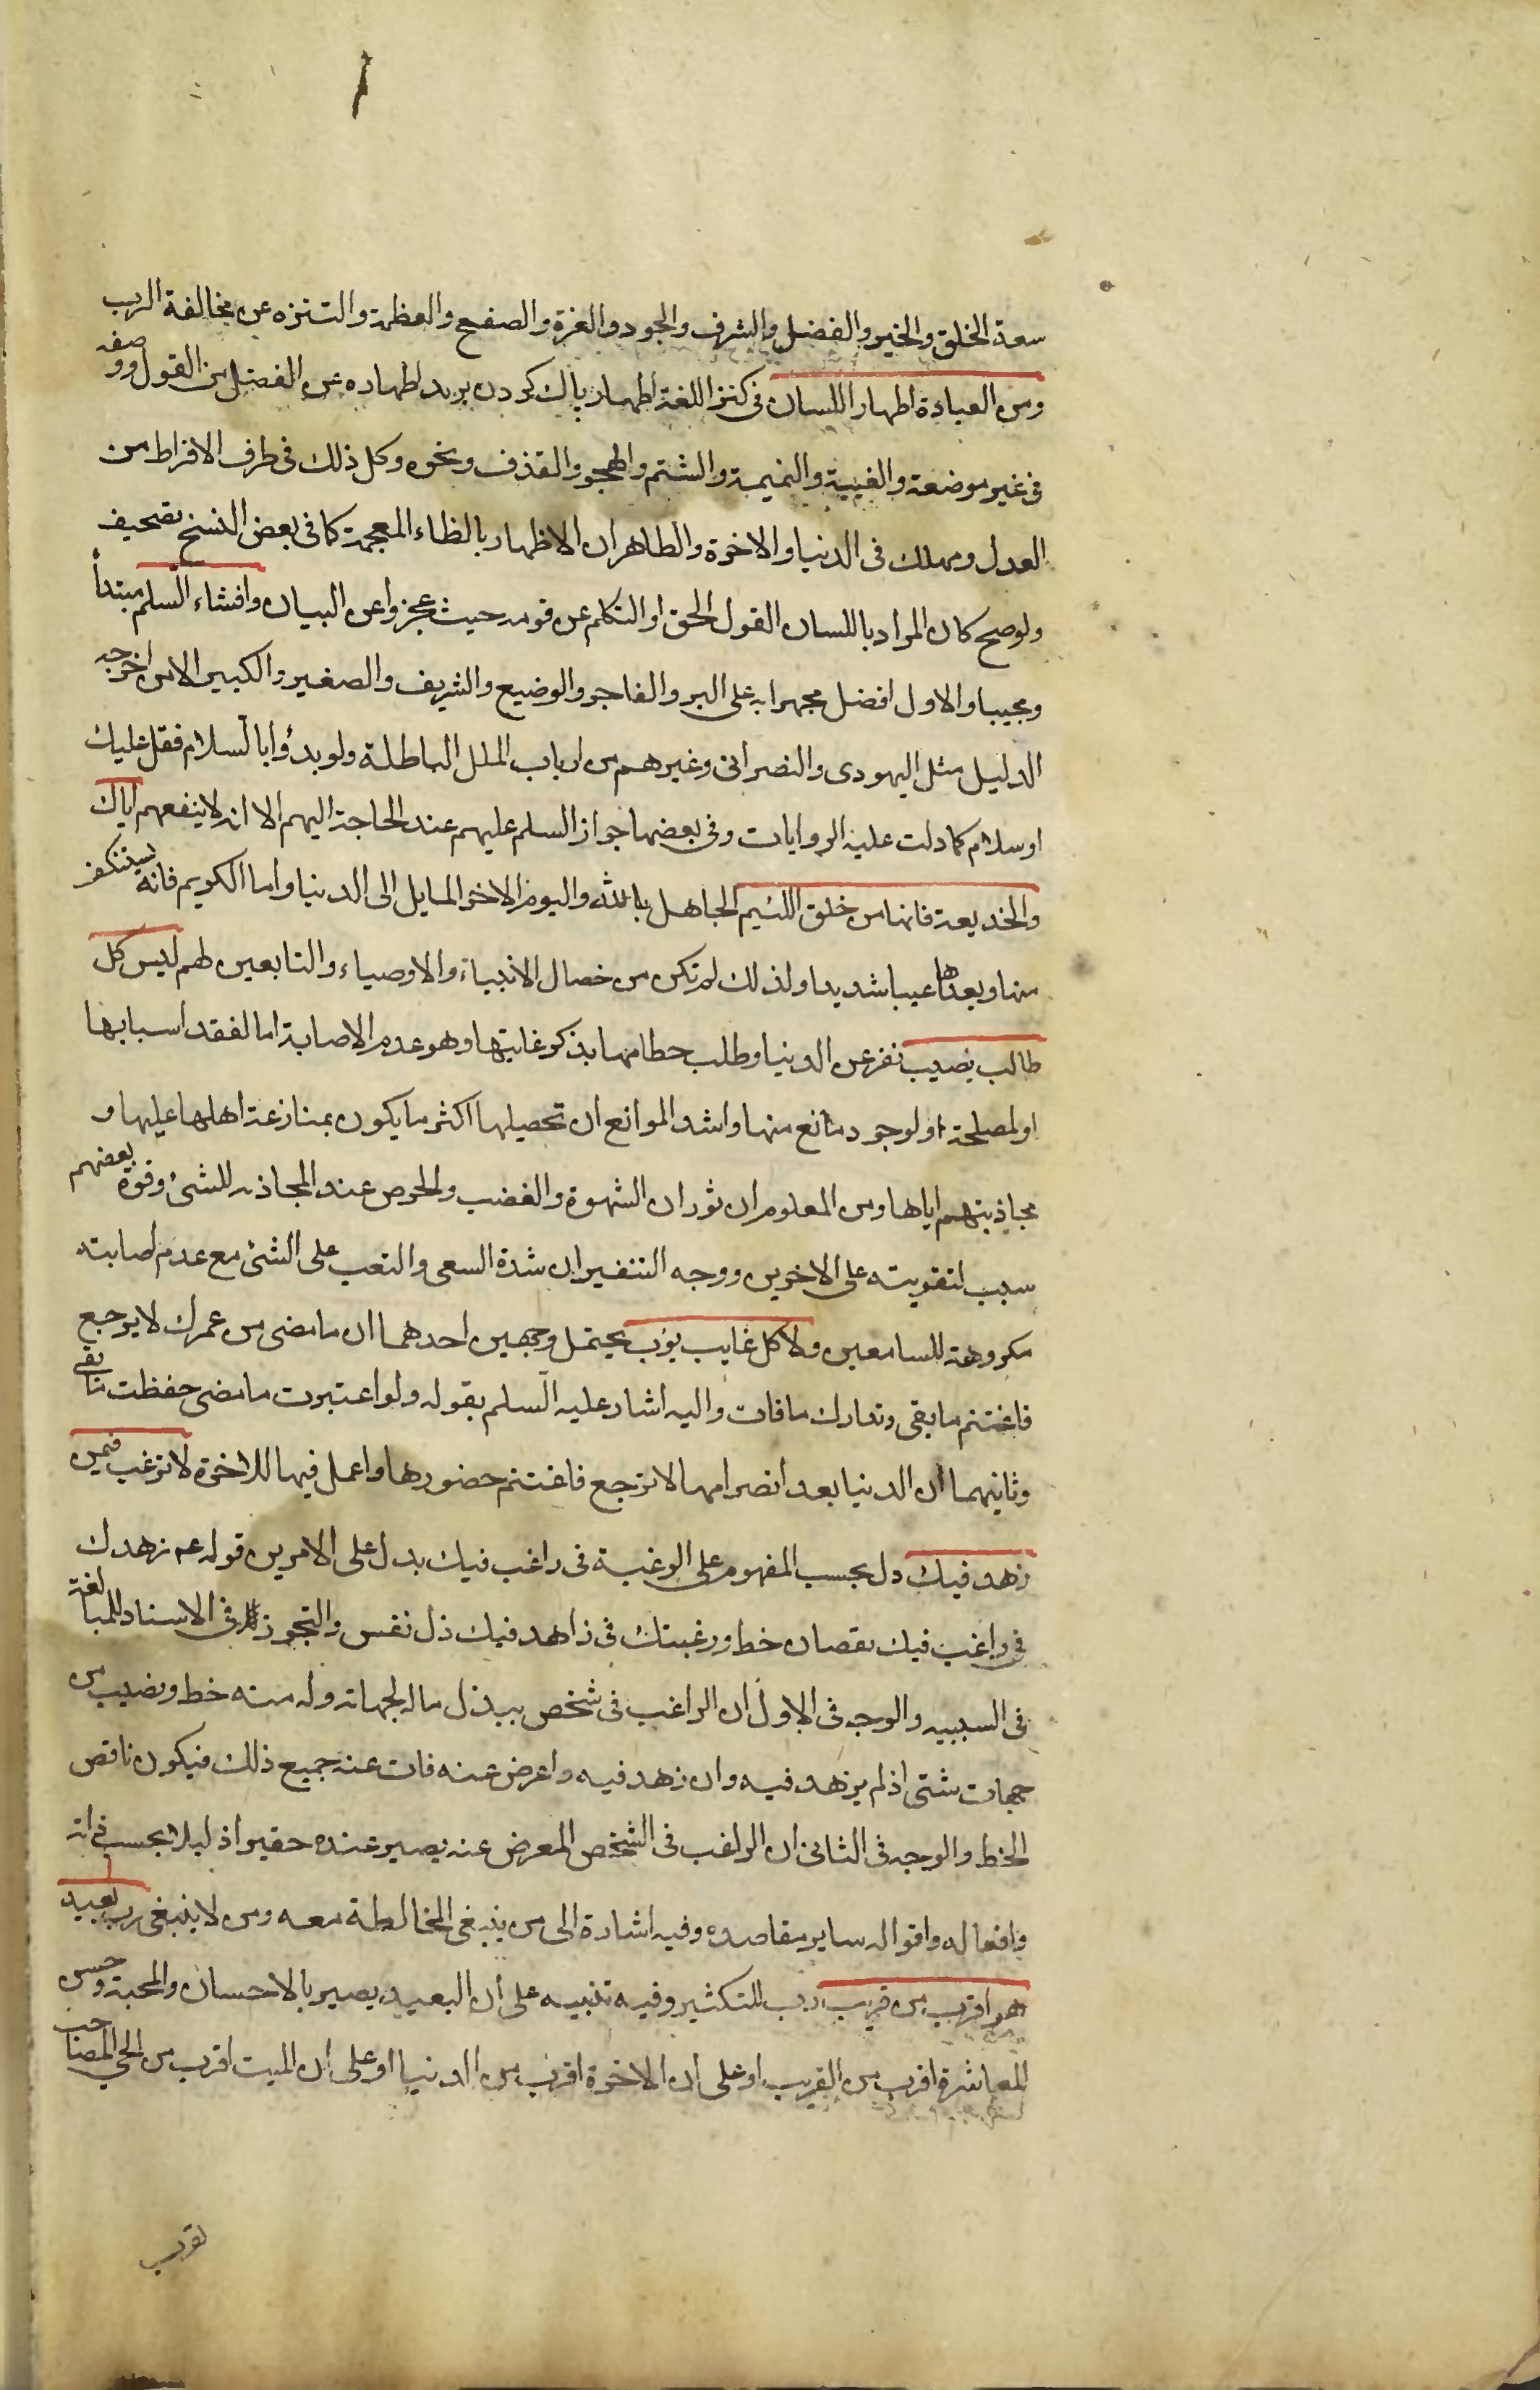 سعة الخلق والخير والفضل والشرف والجود والعزة والصفح والعظمة والتنزه عن مخالفة الرب
ومن العبادة اطهار اللسان فى كنز اللغة اطهار پاك كردن يريد اطهاره عن الفضل من القول ووصفه
فى غير موضعه والغيبة والنميمة والشتم والهجو والقذف ونحوه وكل ذلك فى طرف الافراط من
العدل ومهلك فى الدنيا والاخرة والظاهر ان الاظهار بالظاء المعجمة كما فى بعض النسخ تصحيف
ولو صح كان المراد باللسان القول الحق او التكلم عن قومه حيث عجزوا عن البيان وافشاء السلم مبتدأ
ومجيبا والاول افضل مجهرا به على البر والفاجر والوضيع والشريف والصغير والكبير الا من اخرجه
الدليل مثل اليهودى والنصرانى وغيرهم من ارباب الملل الباطلة ولو بدؤا بالسلام فقل عليك
او سلام كما دلت عليه الروايات وفى بعضها جواز السلم عليهم عند الحاجة اليهم الا انه لا ينفعهم اياك
والخديعة فانها من خلق اللئيم الجاهل بالله واليوم الاخر المايل الى الدنيا واما الكريم فانه يستنكف
منها ويعدها عيبا شديدا ولذلك لم تكن من خصال الانبياء والاوصياء والتابعين لهم ليس كل
طالب يصيب نفر عن الدنيا وطلب حطامها بذكر غايتها وهو عدم الاصابة اما لفقد اسبابها
او لمصلحة او لوجود مانع منها واشد الموانع ان تحصيلها اكثر ما يكون بمنازعة اهلها عليها و
مجاذبتهم اياها ومن المعلوم ان ثوران الشهوة والغضب والحرص عند المجاذبه للشئ وقوة بعضهم
سبب لتقويته على الاخرين ووجه التنفير ان شدة السعى والتعب على الشئ مع عدم اصابته
مكروهة للسامعين ولا كل غايب يؤب يحتمل وجهين احدهما ان ما مضى من عمرك لا يرجع
فاغتنم ما بقى وتدارك ما فات واليه اشار عليه السلم بقوله ولو اعتبرت ما مضى حفظت ما بقى
وثانيهما ان الدنيا بعد انصرامها لا ترجع فاغتنم حضورها واعمل فيها للاخرة لا ترغب فيمن
زهد فيك دل بحسب المفهوم على الرغبة فى راغب فيك يدل على الامرين قوله عم زهدك
فى راغب فيك نقصان حظ ورغبتك فى زاهد فيك ذل نفس والتجوز فى الاسناد للمبالغة
فى السببيه والوجه فى الاول ان الراغب فى شخص يبذل ماله لجهاته وله منه حظ ونصيب من
جهات شتى اذ لم يزهد فيه وان زهد فيه واعرض عنه فات عنه جميع ذلك فيكون ناقص
الحظ والوجه فى الثانى ان الراغب فى الشخص المعرض عنه يصير عنده حقيرا ذليلا بحسب ذاته
وافعاله واقواله ساير مقاصده وفيه اشارة الى من ينبغى المخالطة معه ومن لا ينبغى رب بعيد
هو اقرب من قريب رب للتكثير وفيه تنبيه على ان البعيد يصير بالاحسان والمحبة وحسن
المعاشرة اقرب من القريب او على ان الاخرة اقرب من الدنيا او على ان الميت اقرب من الحي المصاحب